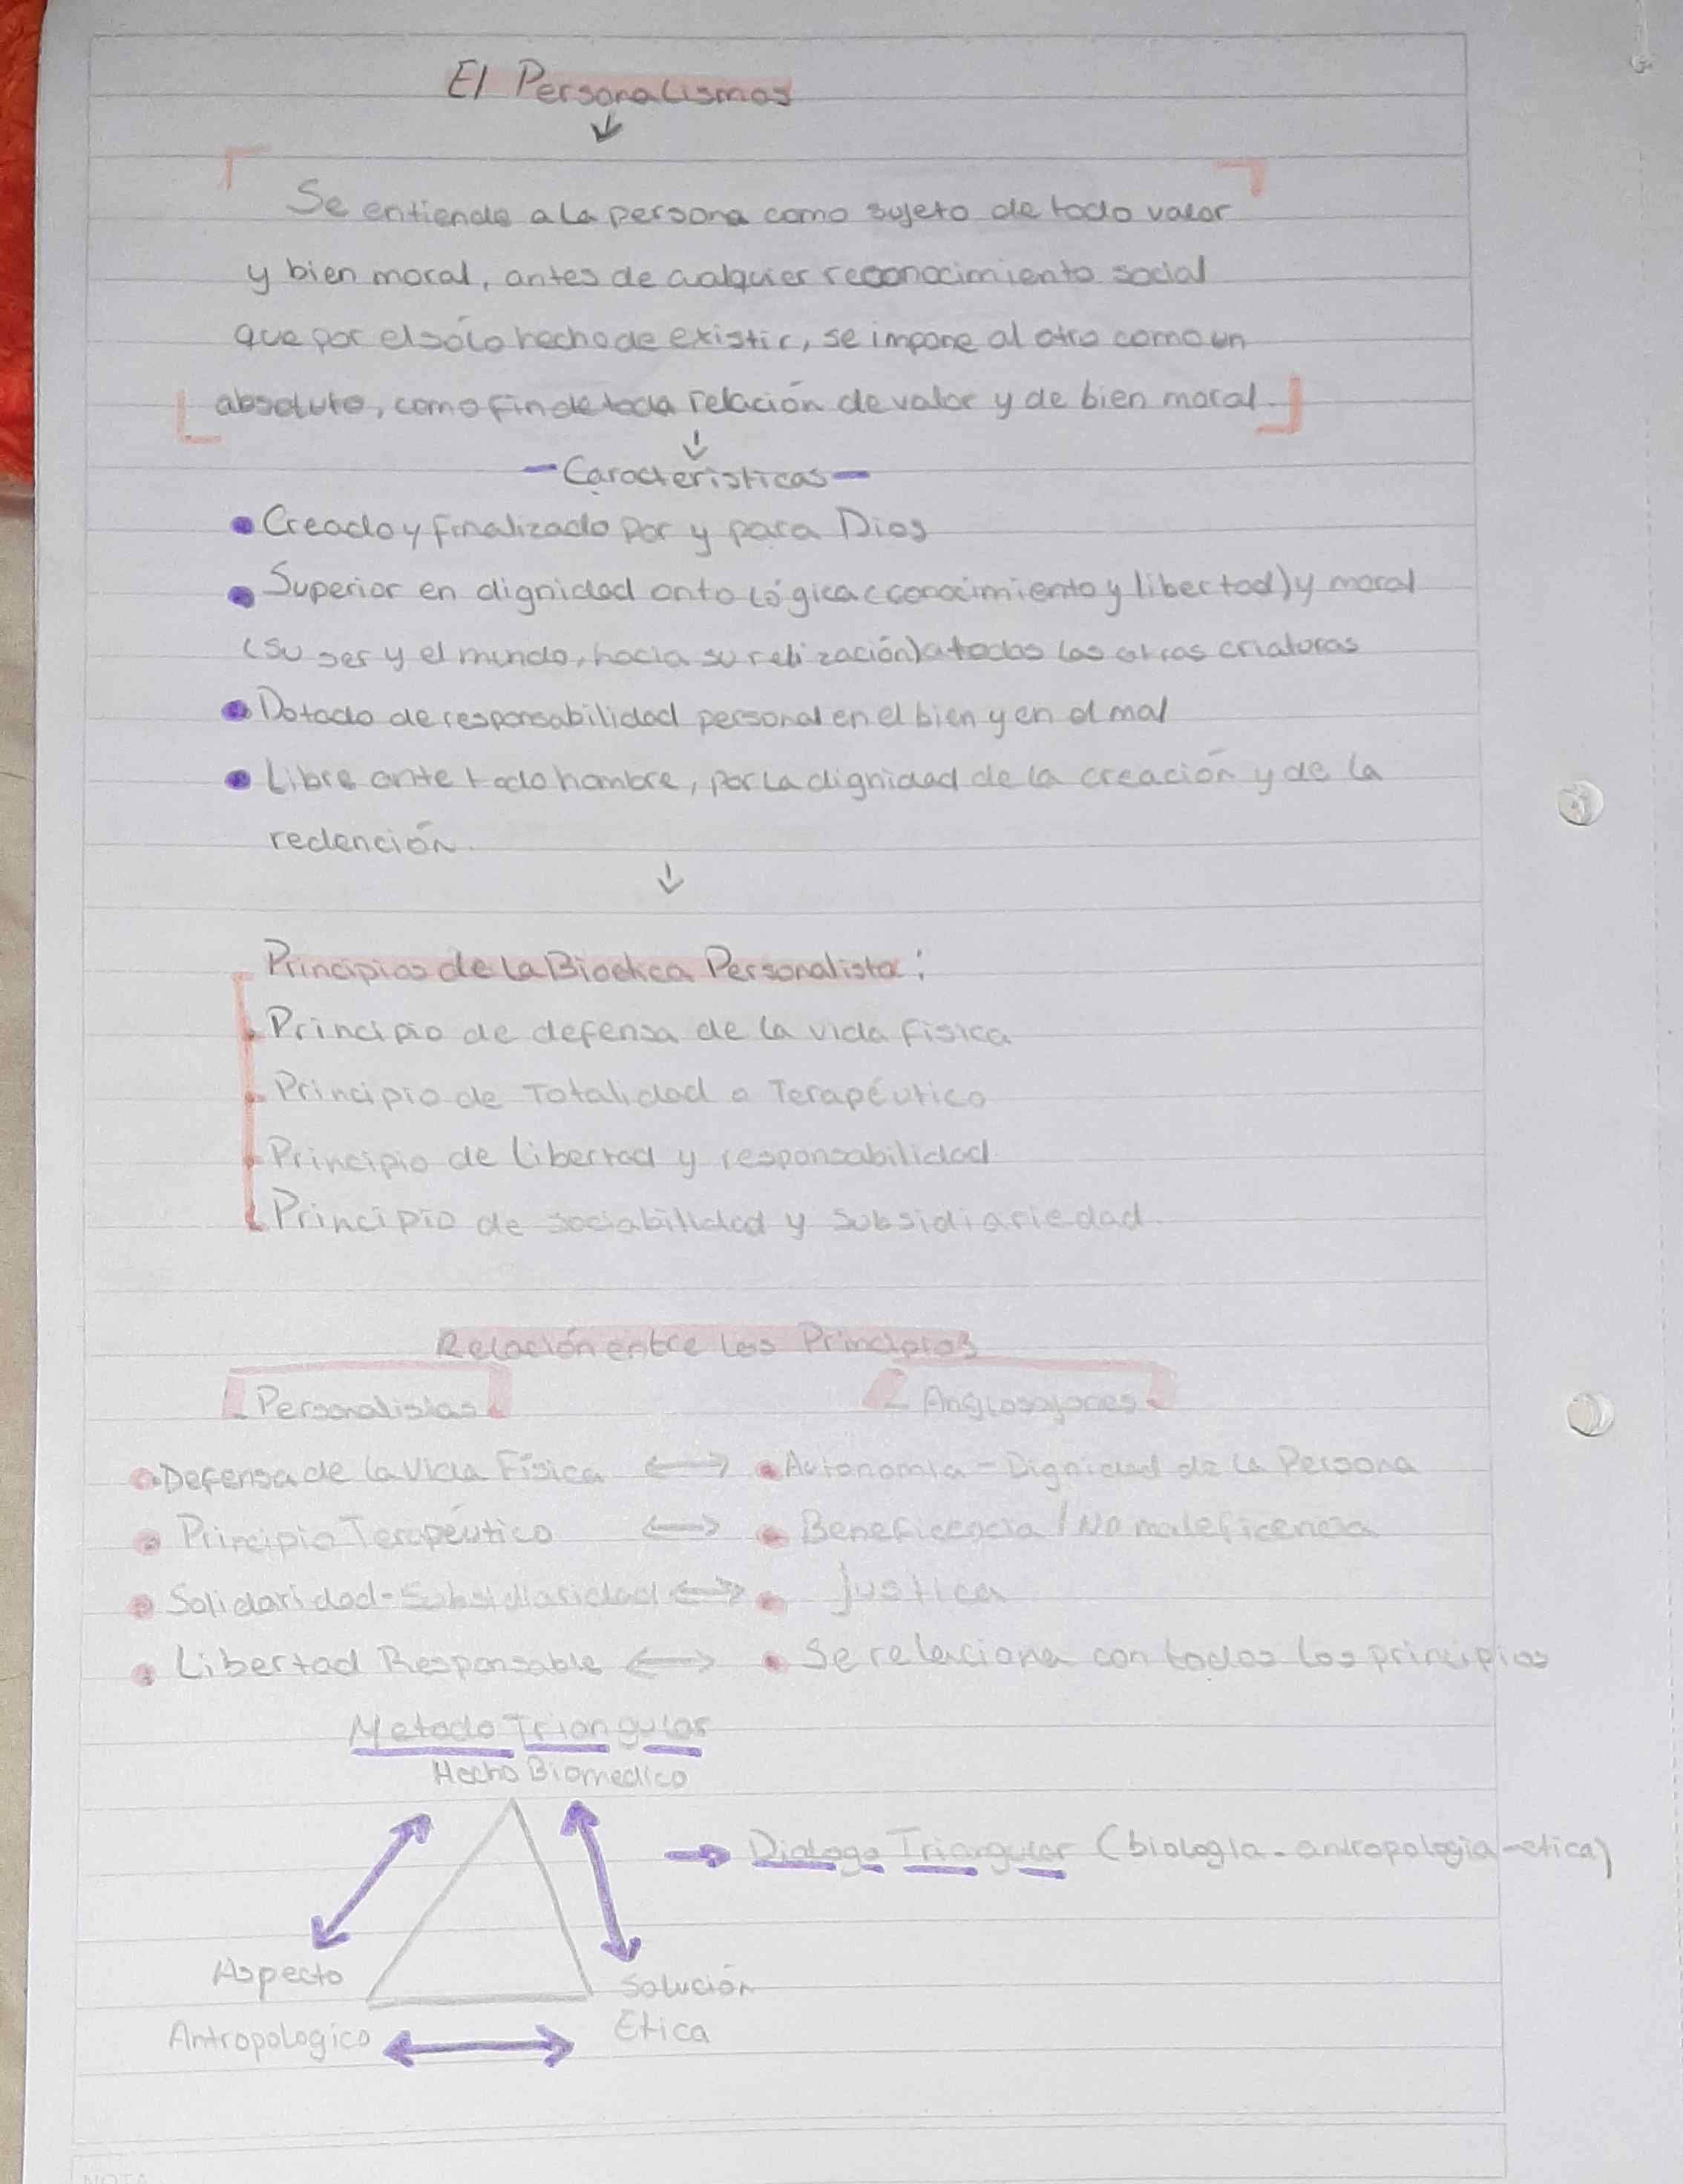 El Personalismos
Se entiende a la persona como sujeto de todo valor
y bien moral, antes de cualquier reconocimiento social
que por el sólo hecho de existir, se impone al otro como un
absoluto, como fin de toda relación de valor y de bien moral.
- Caracteristicas -
Creado y finalizado por y para Dios
Superior en dignidad ontológica (conocimiento y libertad) y moral
(su ser y el mundo, hacia su relización) a todas las otras criaturas
Dotado de responsabilidad personal en el bien y en el mal
Libre ante todo hombre, por la dignidad de la creación y de la
redención.
Principios de la Bioetica Personalista:
Principio de defensa de la vida fisica
Principio de Totalidad o Terapéutico
Principio de Libertad y responsabilidad
Principio de sociabilidad y subsidiariedad.
Relación entre los Principios
Personalistas Anglosajones
Defensa de la Vida Física ↔ Autonomia - Dignidad de la Persona
Principio Terapéutico ↔ Beneficencia / No maleficencia
Solidaridad - Subsidiaridad ↔ Justica
Libertad Responsable ↔ Se relaciona con todos los principios
Metodo Triangular
Hecho Biomedico
→ Dialogo Triangular (biologia - antropologia - etica)
Aspecto Solución
Antropologico Etica
NOTA